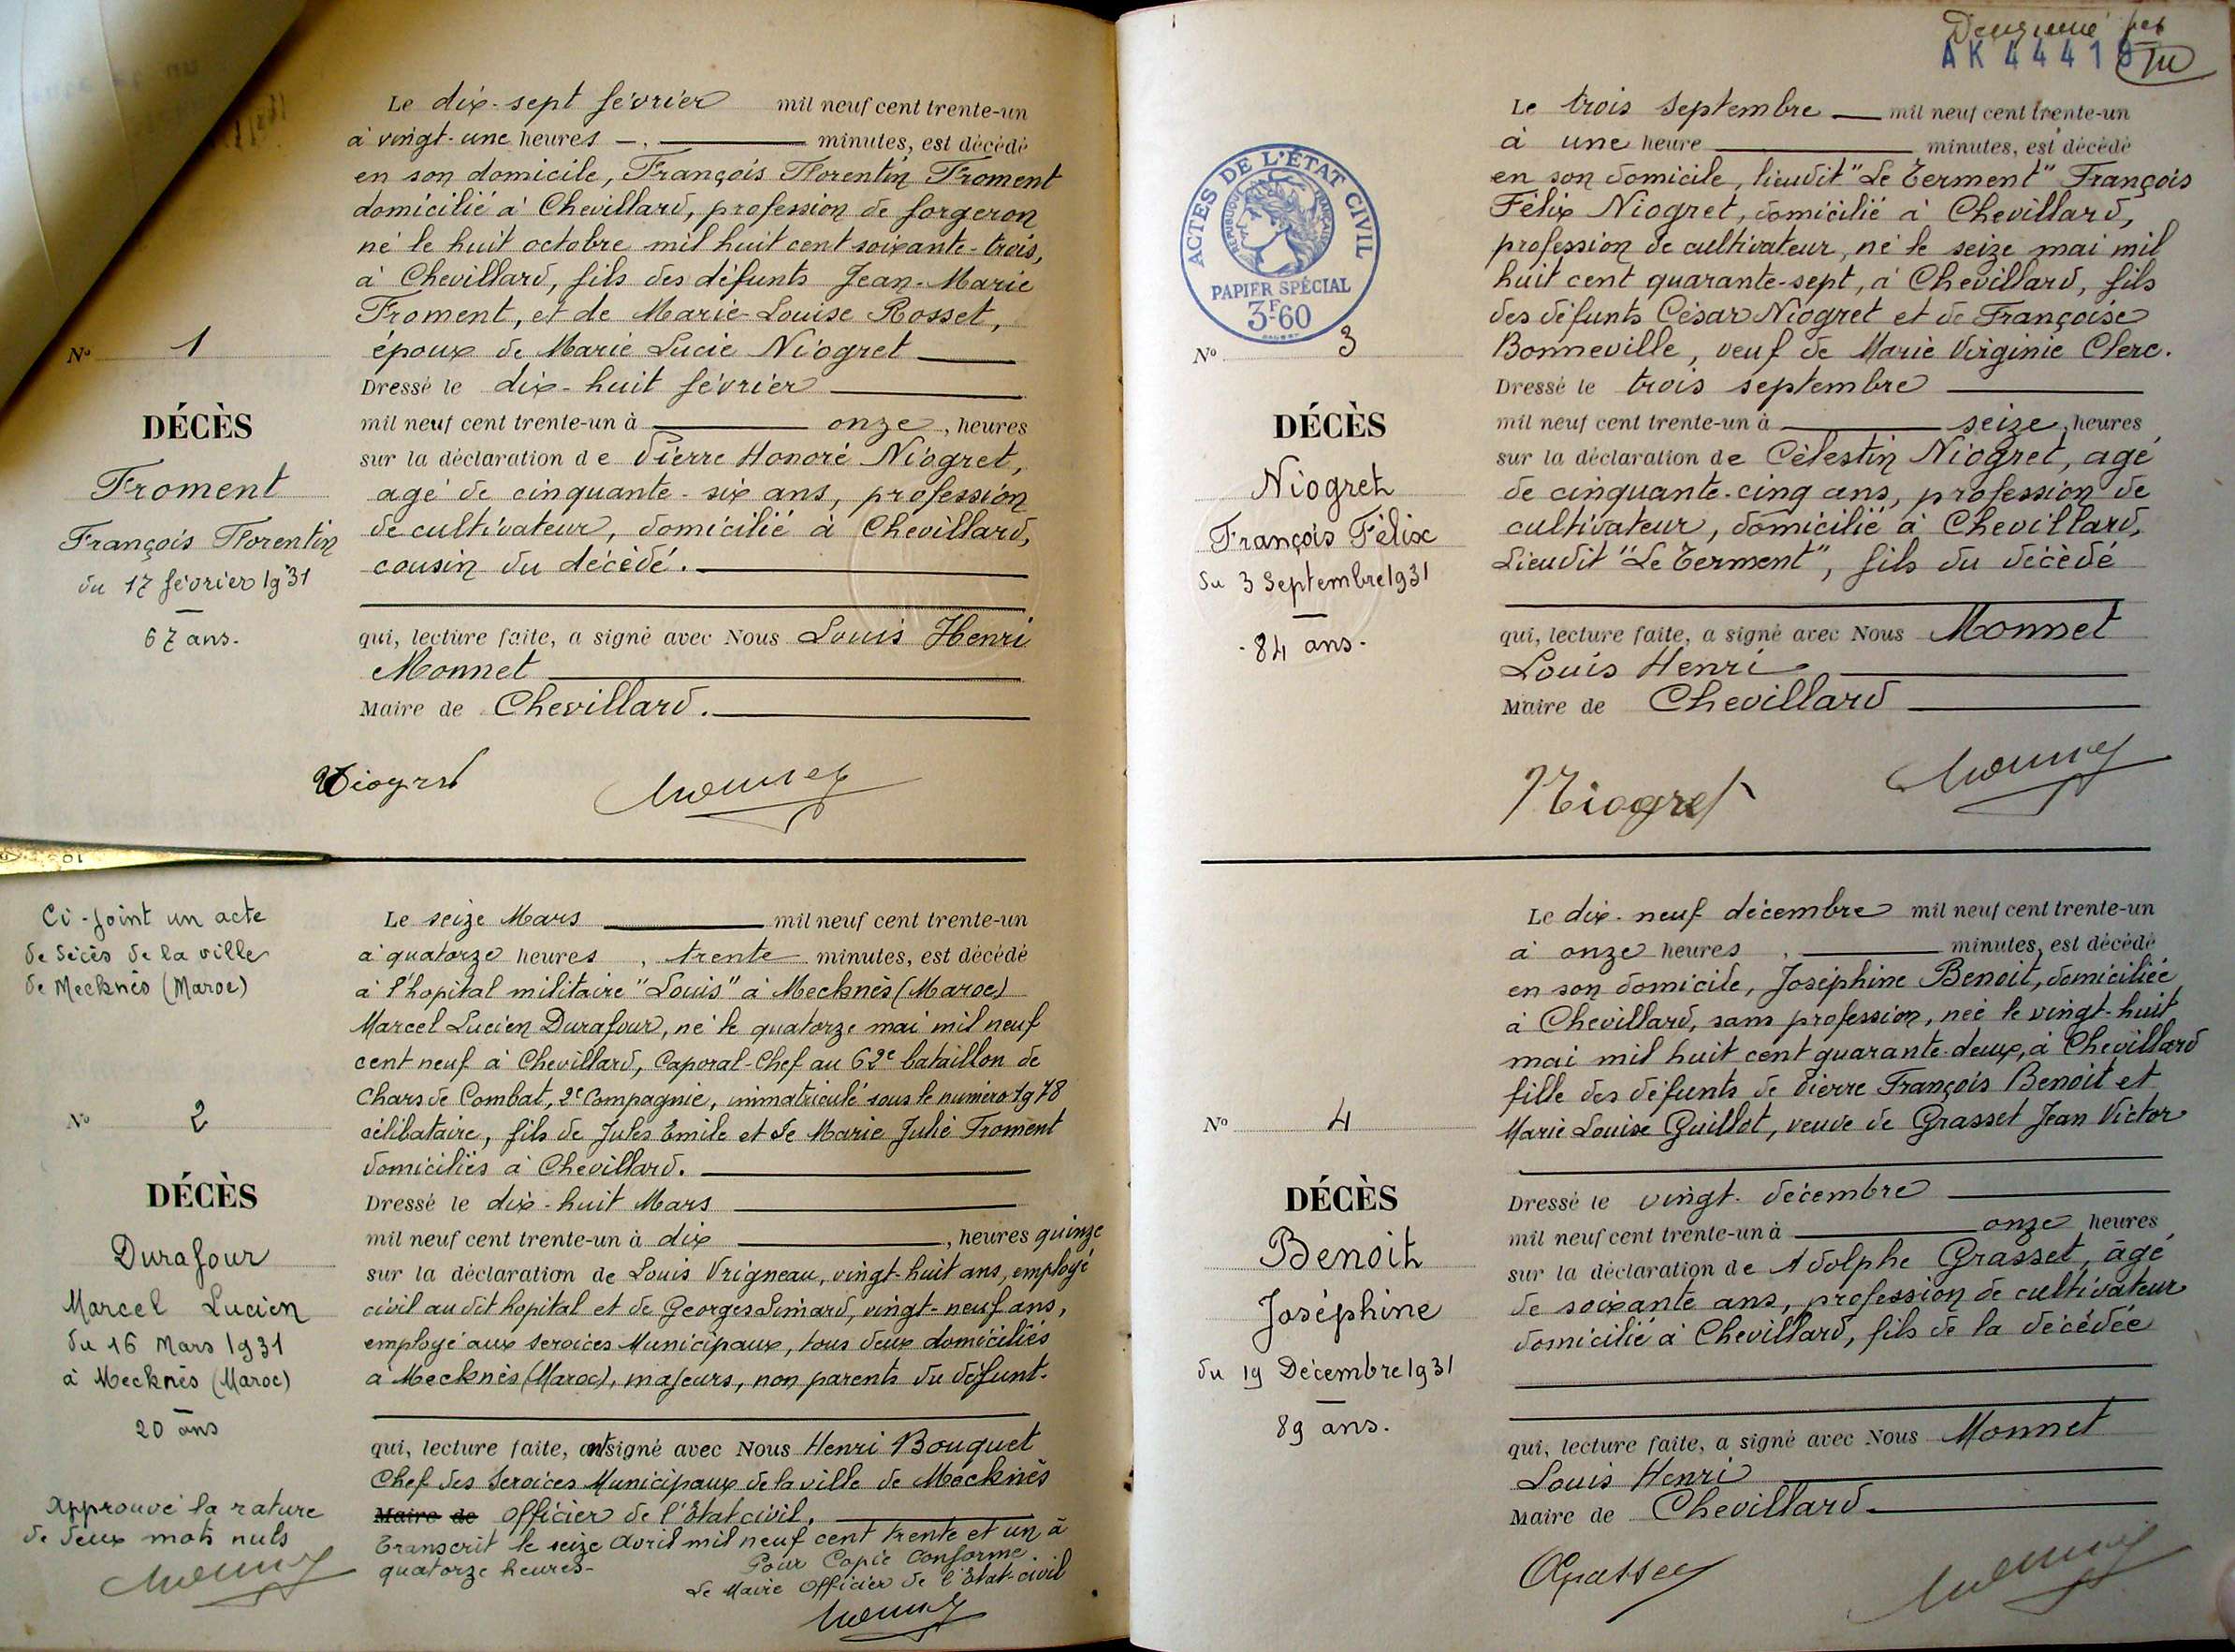 Le dix-sept février mil neuf cent trente-un
à vingt-une heures minutes, est décédé
en son domicile, François Florentin Froment
domicilié à Chevillard, profession de forgeron
né le huit octobre mil huit cent soixante-trois,
à Chevillard, fils des défunts Jean-Marie
Froment, et de Marie-Louise Rosset,
N° 1
époux de Marie Lucie Niogret
Dressé le dix-huit février
mil neuf cent trente-un à onze, heures
DÉCÈS
Froment
François Florentin
du 17 février 1931
67 ans.
sur la déclaration de Pierre Honoré Niogret,
agé de cinquante-six ans, profession
de cultivateur, domicilié à Chevillard,
cousin du décédé.
qui, lecture faite, a signé avec Nous Louis Henri
Monnet
Maire de Chevillard.
Niogret
Monnet
Ci-joint un acte
de décès de la ville
de Mecknès (Maroc)
Le seize Mars mil neuf cent trente-un
à quatorze heures, trente minutes, est décédé
à l'hopital militaire "Louis" à Mecknès (Maroc)
Marcel Lucien Durafour, né le quatorze mai mil neuf
cent neuf à Chevillard, Caporal-Chef au 62e bataillon de
Chars de Combat, 2e Compagnie, immatriculé sous le numéro 1978
célibataire, fils de Jules Emile et de Marie Julie Froment
domiciliés à Chevillard.
N° 2
DÉCÈS
Durafour
Marcel Lucien
du 16 Mars 1931
à Mecknès (Maroc)
20 ans
Dressé le dix-huit Mars
mil neuf cent trente-un à dix, heures quinze
sur la déclaration de Louis Vrigneau, vingt-huit ans, employé
civil au dit hopital et de Georges Simard, vingt-neuf ans,
employé aux services Municipaux, tous deux domiciliés
à Mecknès (Maroc), majeurs, non parents du défunt.
qui, lecture faite, ont signé avec Nous Henri Bouquet
Chef des Services Municipaux de la ville de Mecknès
Maire de Officier de l'Etat civil.
Transcrit le seize Avril mil neuf cent trente et un à
quatorze heures-
Pour Copie Conforme.
Le Maire Officier de l'Etat-civil
Monnet
Approuvé la rature
de deux mots nuls
Monnet
AK 4441
ACTES DE L'ÉTAT CIVIL
RÉPUBLIQUE FRANÇAISE
PAPIER SPÉCIAL
3F60
Le trois Septembre mil neuf cent trente-un
à une heure minutes, est décédé
en son domicile, lieudit "Le Terment" François
Félix Niogret, domicilié à Chevillard,
profession de cultivateur, né le seize mai mil
huit cent quarante-sept, à Chevillard, fils
des défunts César Niogret et de Françoise
Bonneville, veuf de Marie Virginie Clerc.
N° 3
DÉCÈS
Niogret
François Félix
du 3 Septembre 1931
-84 ans-
Dressé le trois septembre
mil neuf cent trente-un à seize, heures
sur la déclaration de Célestin Niogret, agé
de cinquante-cinq ans, profession de
cultivateur, domicilié à Chevillard,
Lieudit "Le Terment", fils du décédé
qui, lecture faite, a signé avec Nous Monnet
Louis Henri
Maire de Chevillard
Niogret
Monnet
Le dix-neuf décembre mil neuf cent trente-un
à onze heures, minutes, est décédé
en son domicile, Joséphine Benoit, domiciliée
à Chevillard, sans profession, née le vingt-huit
mai mil huit cent quarante-deux, à Chevillard
fille des défunts de Pierre François Benoit et
Marie Louise Guillot, veuve de Grasset Jean Victor
N° 4
DÉCÈS
Benoit
Joséphine
du 19 Décembre 1931
89 ans.
Dressé le vingt décembre
mil neuf cent trente-un à onze heures
sur la déclaration de Adolphe Grasset, âgé
de soixante ans, profession de cultivateur
domicilié à Chevillard, fils de la décédée
qui, lecture faite, a signé avec Nous Monnet
Louis Henri
Maire de Chevillard
Monnet